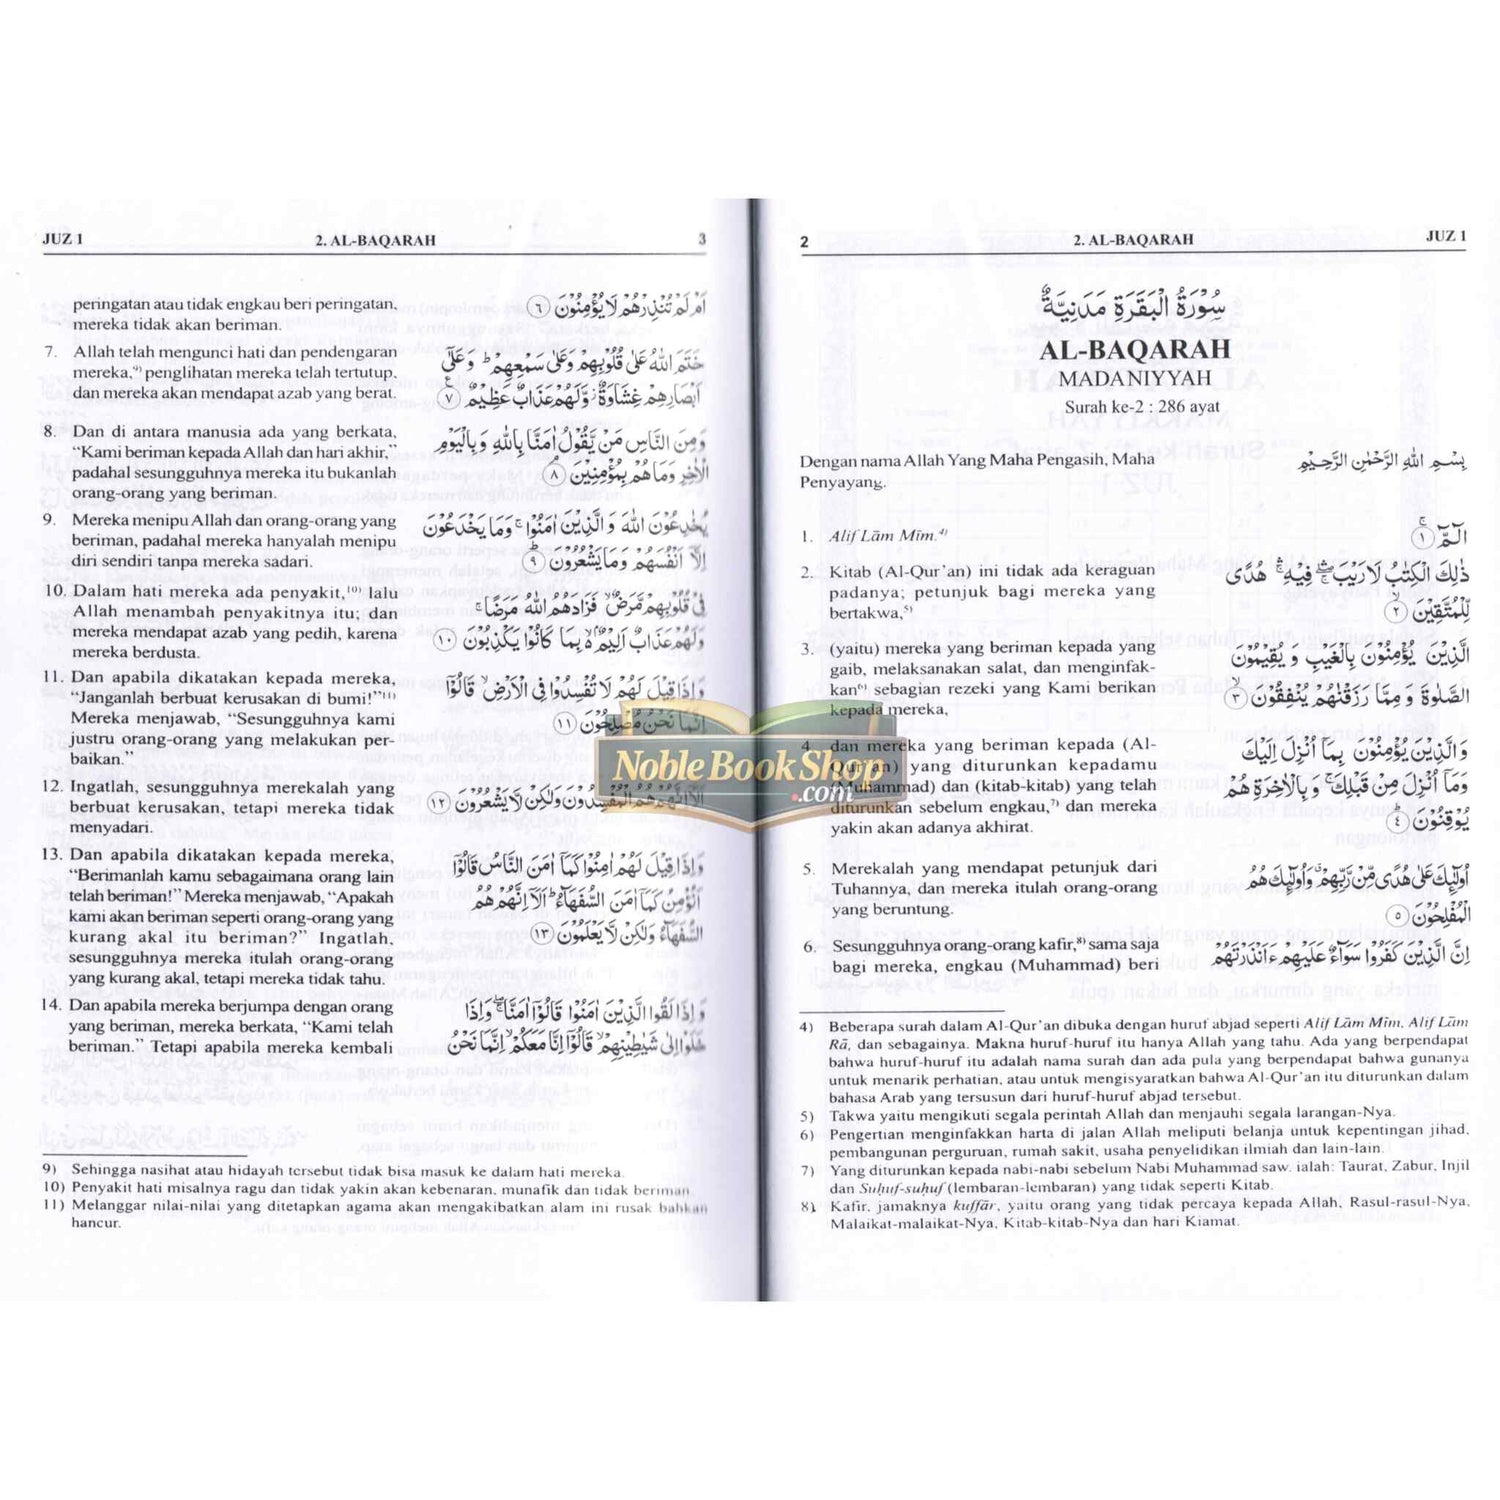 2
2. AL-BAQARAH
JUZ 1
سُوْرَةُ الْبَقَرَةِ مَدَنِيَّةٌ
AL-BAQARAH
MADANIYYAH
Surah ke-2 : 286 ayat
Dengan nama Allah Yang Maha Pengasih, Maha
Penyayang.
بِسْمِ اللهِ الرَّحْمٰنِ الرَّحِيْمِ
1. Alif Lām Mīm.⁴⁾
الۤمّۤ ۚ ١
2. Kitab (Al-Qur'an) ini tidak ada keraguan
padanya; petunjuk bagi mereka yang
bertakwa,⁵⁾
ذٰلِكَ الْكِتٰبُ لَا رَيْبَ ۛ فِيْهِ ۛ هُدًى
لِّلْمُتَّقِيْنَ ۙ ٢
3. (yaitu) mereka yang beriman kepada yang
gaib, melaksanakan salat, dan menginfak-
kan⁶⁾ sebagian rezeki yang Kami berikan
kepada mereka,
الَّذِيْنَ يُؤْمِنُوْنَ بِالْغَيْبِ وَيُقِيْمُوْنَ
الصَّلٰوةَ وَمِمَّا رَزَقْنٰهُمْ يُنْفِقُوْنَ ۙ ٣
4. dan mereka yang beriman kepada (Al-
Qur'an) yang diturunkan kepadamu
(Muhammad) dan (kitab-kitab) yang telah
diturunkan sebelum engkau,⁷⁾ dan mereka
yakin akan adanya akhirat.
وَالَّذِيْنَ يُؤْمِنُوْنَ بِمَآ اُنْزِلَ اِلَيْكَ
وَمَآ اُنْزِلَ مِنْ قَبْلِكَ ۚ وَبِالْاٰخِرَةِ هُمْ
يُوْقِنُوْنَ ۗ ٤
5. Merekalah yang mendapat petunjuk dari
Tuhannya, dan mereka itulah orang-orang
yang beruntung.
اُولٰۤىِٕكَ عَلٰى هُدًى مِّنْ رَّبِّهِمْ ۙ وَاُولٰۤىِٕكَ هُمُ
الْمُفْلِحُوْنَ ٥
6. Sesungguhnya orang-orang kafir,⁸⁾ sama saja
bagi mereka, engkau (Muhammad) beri
اِنَّ الَّذِيْنَ كَفَرُوْا سَوَاۤءٌ عَلَيْهِمْ ءَاَنْذَرْتَهُمْ
4) Beberapa surah dalam Al-Qur'an dibuka dengan huruf abjad seperti Alif Lām Mīm, Alif Lām
Rā, dan sebagainya. Makna huruf-huruf itu hanya Allah yang tahu. Ada yang berpendapat
bahwa huruf-huruf itu adalah nama surah dan ada pula yang berpendapat bahwa gunanya
untuk menarik perhatian, atau untuk mengisyaratkan bahwa Al-Qur'an itu diturunkan dalam
bahasa Arab yang tersusun dari huruf-huruf abjad tersebut.
5) Takwa yaitu mengikuti segala perintah Allah dan menjauhi segala larangan-Nya.
6) Pengertian menginfakkan harta di jalan Allah meliputi belanja untuk kepentingan jihad,
pembangunan perguruan, rumah sakit, usaha penyelidikan ilmiah dan lain-lain.
7) Yang diturunkan kepada nabi-nabi sebelum Nabi Muhammad saw. ialah: Taurat, Zabur, Injil
dan Ṣuḥuf-ṣuḥuf (lembaran-lembaran) yang tidak seperti Kitab.
8) Kafir, jamaknya kuffār, yaitu orang yang tidak percaya kepada Allah, Rasul-rasul-Nya,
Malaikat-malaikat-Nya, Kitab-kitab-Nya dan hari Kiamat.
JUZ 1
2. AL-BAQARAH
3
peringatan atau tidak engkau beri peringatan,
mereka tidak akan beriman.
اَمْ لَمْ تُنْذِرْهُمْ لَا يُؤْمِنُوْنَ ٦
7. Allah telah mengunci hati dan pendengaran
mereka,⁹⁾ penglihatan mereka telah tertutup,
dan mereka akan mendapat azab yang berat.
خَتَمَ اللهُ عَلٰى قُلُوْبِهِمْ وَعَلٰى سَمْعِهِمْ ۗ وَعَلٰٓى
اَبْصَارِهِمْ غِشَاوَةٌ وَّلَهُمْ عَذَابٌ عَظِيْمٌ ٧
8. Dan di antara manusia ada yang berkata,
"Kami beriman kepada Allah dan hari akhir,"
padahal sesungguhnya mereka itu bukanlah
orang-orang yang beriman.
وَمِنَ النَّاسِ مَنْ يَّقُوْلُ اٰمَنَّا بِاللهِ وَبِالْيَوْمِ
الْاٰخِرِ وَمَا هُمْ بِمُؤْمِنِيْنَ ۘ ٨
9. Mereka menipu Allah dan orang-orang yang
beriman, padahal mereka hanyalah menipu
diri sendiri tanpa mereka sadari.
يُخٰدِعُوْنَ اللهَ وَالَّذِيْنَ اٰمَنُوْا ۚ وَمَا يَخْدَعُوْنَ
اِلَّآ اَنْفُسَهُمْ وَمَا يَشْعُرُوْنَ ۗ ٩
10. Dalam hati mereka ada penyakit,¹⁰⁾ lalu
Allah menambah penyakitnya itu; dan
mereka mendapat azab yang pedih, karena
mereka berdusta.
فِيْ قُلُوْبِهِمْ مَّرَضٌ ۙ فَزَادَهُمُ اللهُ مَرَضًا ۚ
وَلَهُمْ عَذَابٌ اَلِيْمٌ ۢ ە بِمَا كَانُوْا يَكْذِبُوْنَ ١٠
11. Dan apabila dikatakan kepada mereka,
"Janganlah berbuat kerusakan di bumi!"¹¹⁾
Mereka menjawab, "Sesungguhnya kami
justru orang-orang yang melakukan per-
baikan."
وَاِذَا قِيْلَ لَهُمْ لَا تُفْسِدُوْا فِى الْاَرْضِ ۙ قَالُوْٓا
اِنَّمَا نَحْنُ مُصْلِحُوْنَ ١١
12. Ingatlah, sesungguhnya merekalah yang
berbuat kerusakan, tetapi mereka tidak
menyadari.
اَلَآ اِنَّهُمْ هُمُ الْمُفْسِدُوْنَ وَلٰكِنْ لَّا يَشْعُرُوْنَ ١٢
13. Dan apabila dikatakan kepada mereka,
"Berimanlah kamu sebagaimana orang lain
telah beriman!" Mereka menjawab, "Apakah
kami akan beriman seperti orang-orang yang
kurang akal itu beriman?" Ingatlah,
sesungguhnya mereka itulah orang-orang
yang kurang akal, tetapi mereka tidak tahu.
وَاِذَا قِيْلَ لَهُمْ اٰمِنُوْا كَمَآ اٰمَنَ النَّاسُ قَالُوْٓا
اَنُؤْمِنُ كَمَآ اٰمَنَ السُّفَهَاۤءُ ۗ اَلَآ اِنَّهُمْ هُمُ
السُّفَهَاۤءُ وَلٰكِنْ لَّا يَعْلَمُوْنَ ١٣
14. Dan apabila mereka berjumpa dengan orang
yang beriman, mereka berkata, "Kami telah
beriman." Tetapi apabila mereka kembali
وَاِذَا لَقُوا الَّذِيْنَ اٰمَنُوْا قَالُوْٓا اٰمَنَّا ۚ وَاِذَا
خَلَوْا اِلٰى شَيٰطِيْنِهِمْ ۙ قَالُوْٓا اِنَّا مَعَكُمْ ۙ اِنَّمَا نَحْنُ
9) Sehingga nasihat atau hidayah tersebut tidak bisa masuk ke dalam hati mereka.
10) Penyakit hati misalnya ragu dan tidak yakin akan kebenaran, munafik dan tidak beriman.
11) Melanggar nilai-nilai yang ditetapkan agama akan mengakibatkan alam ini rusak bahkan
hancur.
NobleBookShop
.com